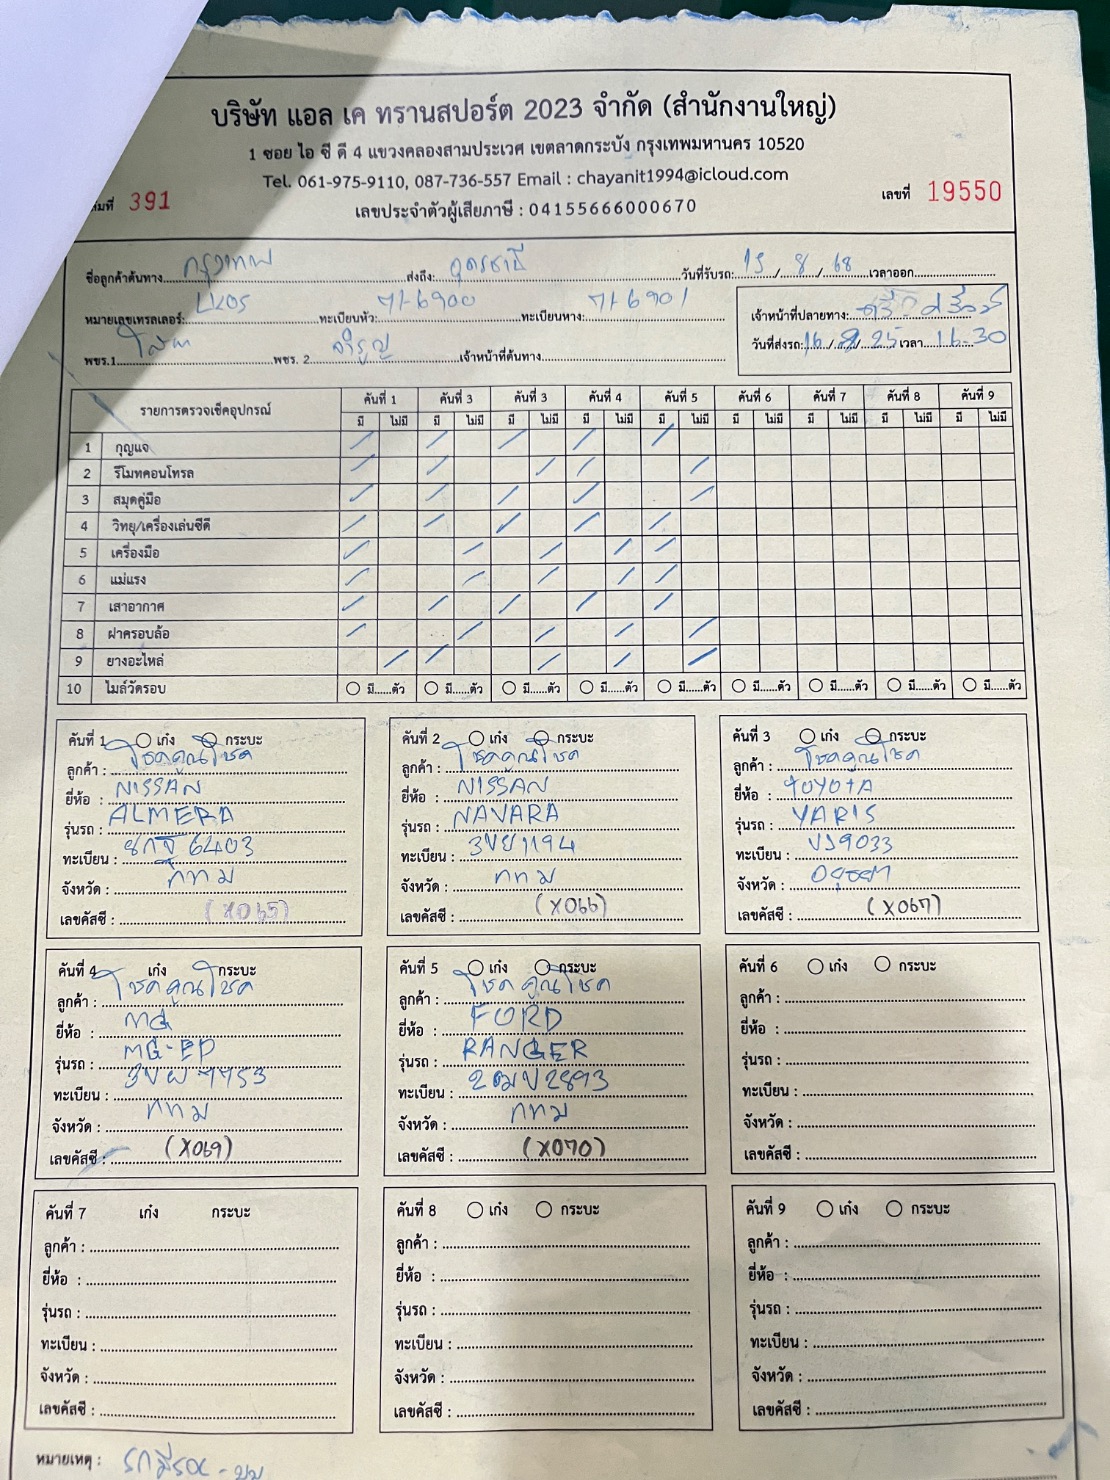 บริษัท แอล เค ทรานสปอร์ต 2023 จำกัด (สำนักงานใหญ่)
1 ซอย ไอ ซี ดี 4 แขวงคลองสามประเวศ เขตลาดกระบัง กรุงเทพมหานคร 10520
Tel. 061-975-9110, 087-736-557 Email : chayanit1994@icloud.com
391 เลขที่ 19550
เลขประจำตัวผู้เสียภาษี : 04155666000670
ชื่อลูกค้าต้นทาง กรุงเทพ ส่งถึง: อุดรธานี วันที่รับรถ: 15 / 8 / 68 เวลาออก
หมายเลขเทรลเลอร์: LK05 ทะเบียนหัว: 71-6900 ทะเบียนหาง: 71-6901 เจ้าหน้าที่ปลายทาง:
พขร.1 พขร. 2 จำรูญ เจ้าหน้าที่ต้นทาง วันที่ส่งรถ: 16 / 8 / 25 เวลา 16.30
รายการตรวจเช็คอุปกรณ์ คันที่ 1 คันที่ 3 คันที่ 3 คันที่ 4 คันที่ 5 คันที่ 6 คันที่ 7 คันที่ 8 คันที่ 9
มี ไม่มี มี ไม่มี มี ไม่มี มี ไม่มี มี ไม่มี มี ไม่มี มี ไม่มี มี ไม่มี มี ไม่มี
1 กุญแจ
2 รีโมทคอนโทรล
3 สมุดคู่มือ
4 วิทยุ/เครื่องเล่นซีดี
5 เครื่องมือ
6 แม่แรง
7 เสาอากาศ
8 ฝาครอบล้อ
9 ยางอะไหล่
10 ไมล์วัดรอบ มี......ตัว มี......ตัว มี......ตัว มี......ตัว มี......ตัว มี......ตัว มี......ตัว มี......ตัว มี......ตัว
คันที่ 1 เก๋ง กระบะ
ลูกค้า : โชคคูณโชค
ยี่ห้อ : NISSAN
รุ่นรถ : ALMERA
ทะเบียน : 6403
จังหวัด : กทม
เลขคัสซี : (X065)
คันที่ 2 เก๋ง กระบะ
ลูกค้า : โชคคูณโชค
ยี่ห้อ : NISSAN
รุ่นรถ : NAVARA
ทะเบียน : 1194
จังหวัด : กทม
เลขคัสซี : (X066)
คันที่ 3 เก๋ง กระบะ
ลูกค้า : โชคคูณโชค
ยี่ห้อ : TOYOTA
รุ่นรถ : YARIS
ทะเบียน : 9033
จังหวัด : อยุธยา
เลขคัสซี : (X067)
คันที่ 4 เก๋ง กระบะ
ลูกค้า : โชคคูณโชค
ยี่ห้อ : MG
รุ่นรถ : MG-EP
ทะเบียน :
จังหวัด : กทม
เลขคัสซี : (X069)
คันที่ 5 เก๋ง กระบะ
ลูกค้า : โชคคูณโชค
ยี่ห้อ : FORD
รุ่นรถ : RANGER
ทะเบียน : 2893
จังหวัด : กทม
เลขคัสซี : (X070)
คันที่ 6 เก๋ง กระบะ
ลูกค้า :
ยี่ห้อ :
รุ่นรถ :
ทะเบียน :
จังหวัด :
เลขคัสซี :
คันที่ 7 เก๋ง กระบะ
ลูกค้า :
ยี่ห้อ :
รุ่นรถ :
ทะเบียน :
จังหวัด :
เลขคัสซี :
คันที่ 8 เก๋ง กระบะ
ลูกค้า :
ยี่ห้อ :
รุ่นรถ :
ทะเบียน :
จังหวัด :
เลขคัสซี :
คันที่ 9 เก๋ง กระบะ
ลูกค้า :
ยี่ห้อ :
รุ่นรถ :
ทะเบียน :
จังหวัด :
เลขคัสซี :
หมายเหตุ :